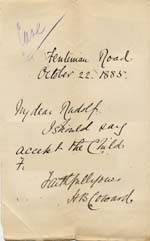 Fentiman Road
October 22. 1885.
My dear Rudolf.
I should say
accept the Child
F.
Faithfully yours
H B Coward